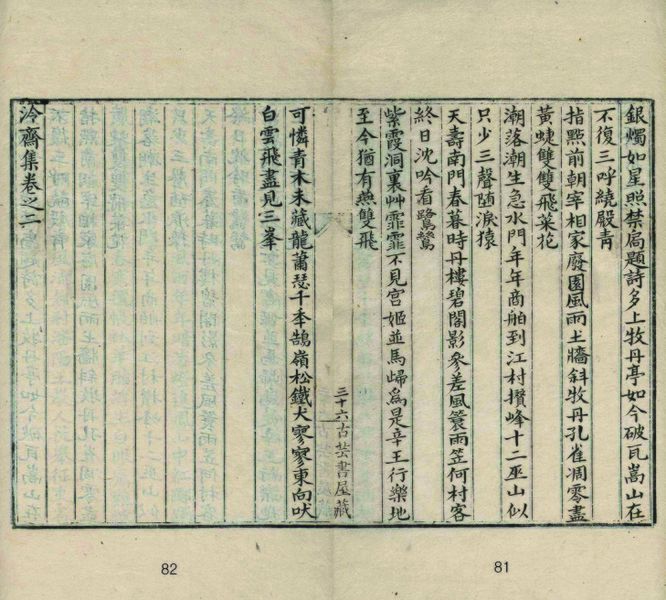 銀燭如星照禁扃題詩多上牧丹亭如今破瓦嵩山在
不復三呼繞殿青
指點前朝宰相家廢園風雨土牆斜牧丹孔雀凋零盡
黃蜨雙雙飛菜花
潮落潮生急水門年年商舶到江村攢峰十二巫山似
只少三聲墮淚猿
天壽南門春暮時丹樓碧閣影參差風簑雨笠何村客
終日沈吟看鷺鷥
紫霞洞裏艸霏霏不見宮姬並馬歸爲是辛王行樂地
至今猶有燕雙飛
三十六古芸書屋藏
可憐青木未藏龍蕭瑟千季鵠嶺松鐵犬寥寥東向吠
白雲飛盡見三峯
泠齋集卷之二
81
82